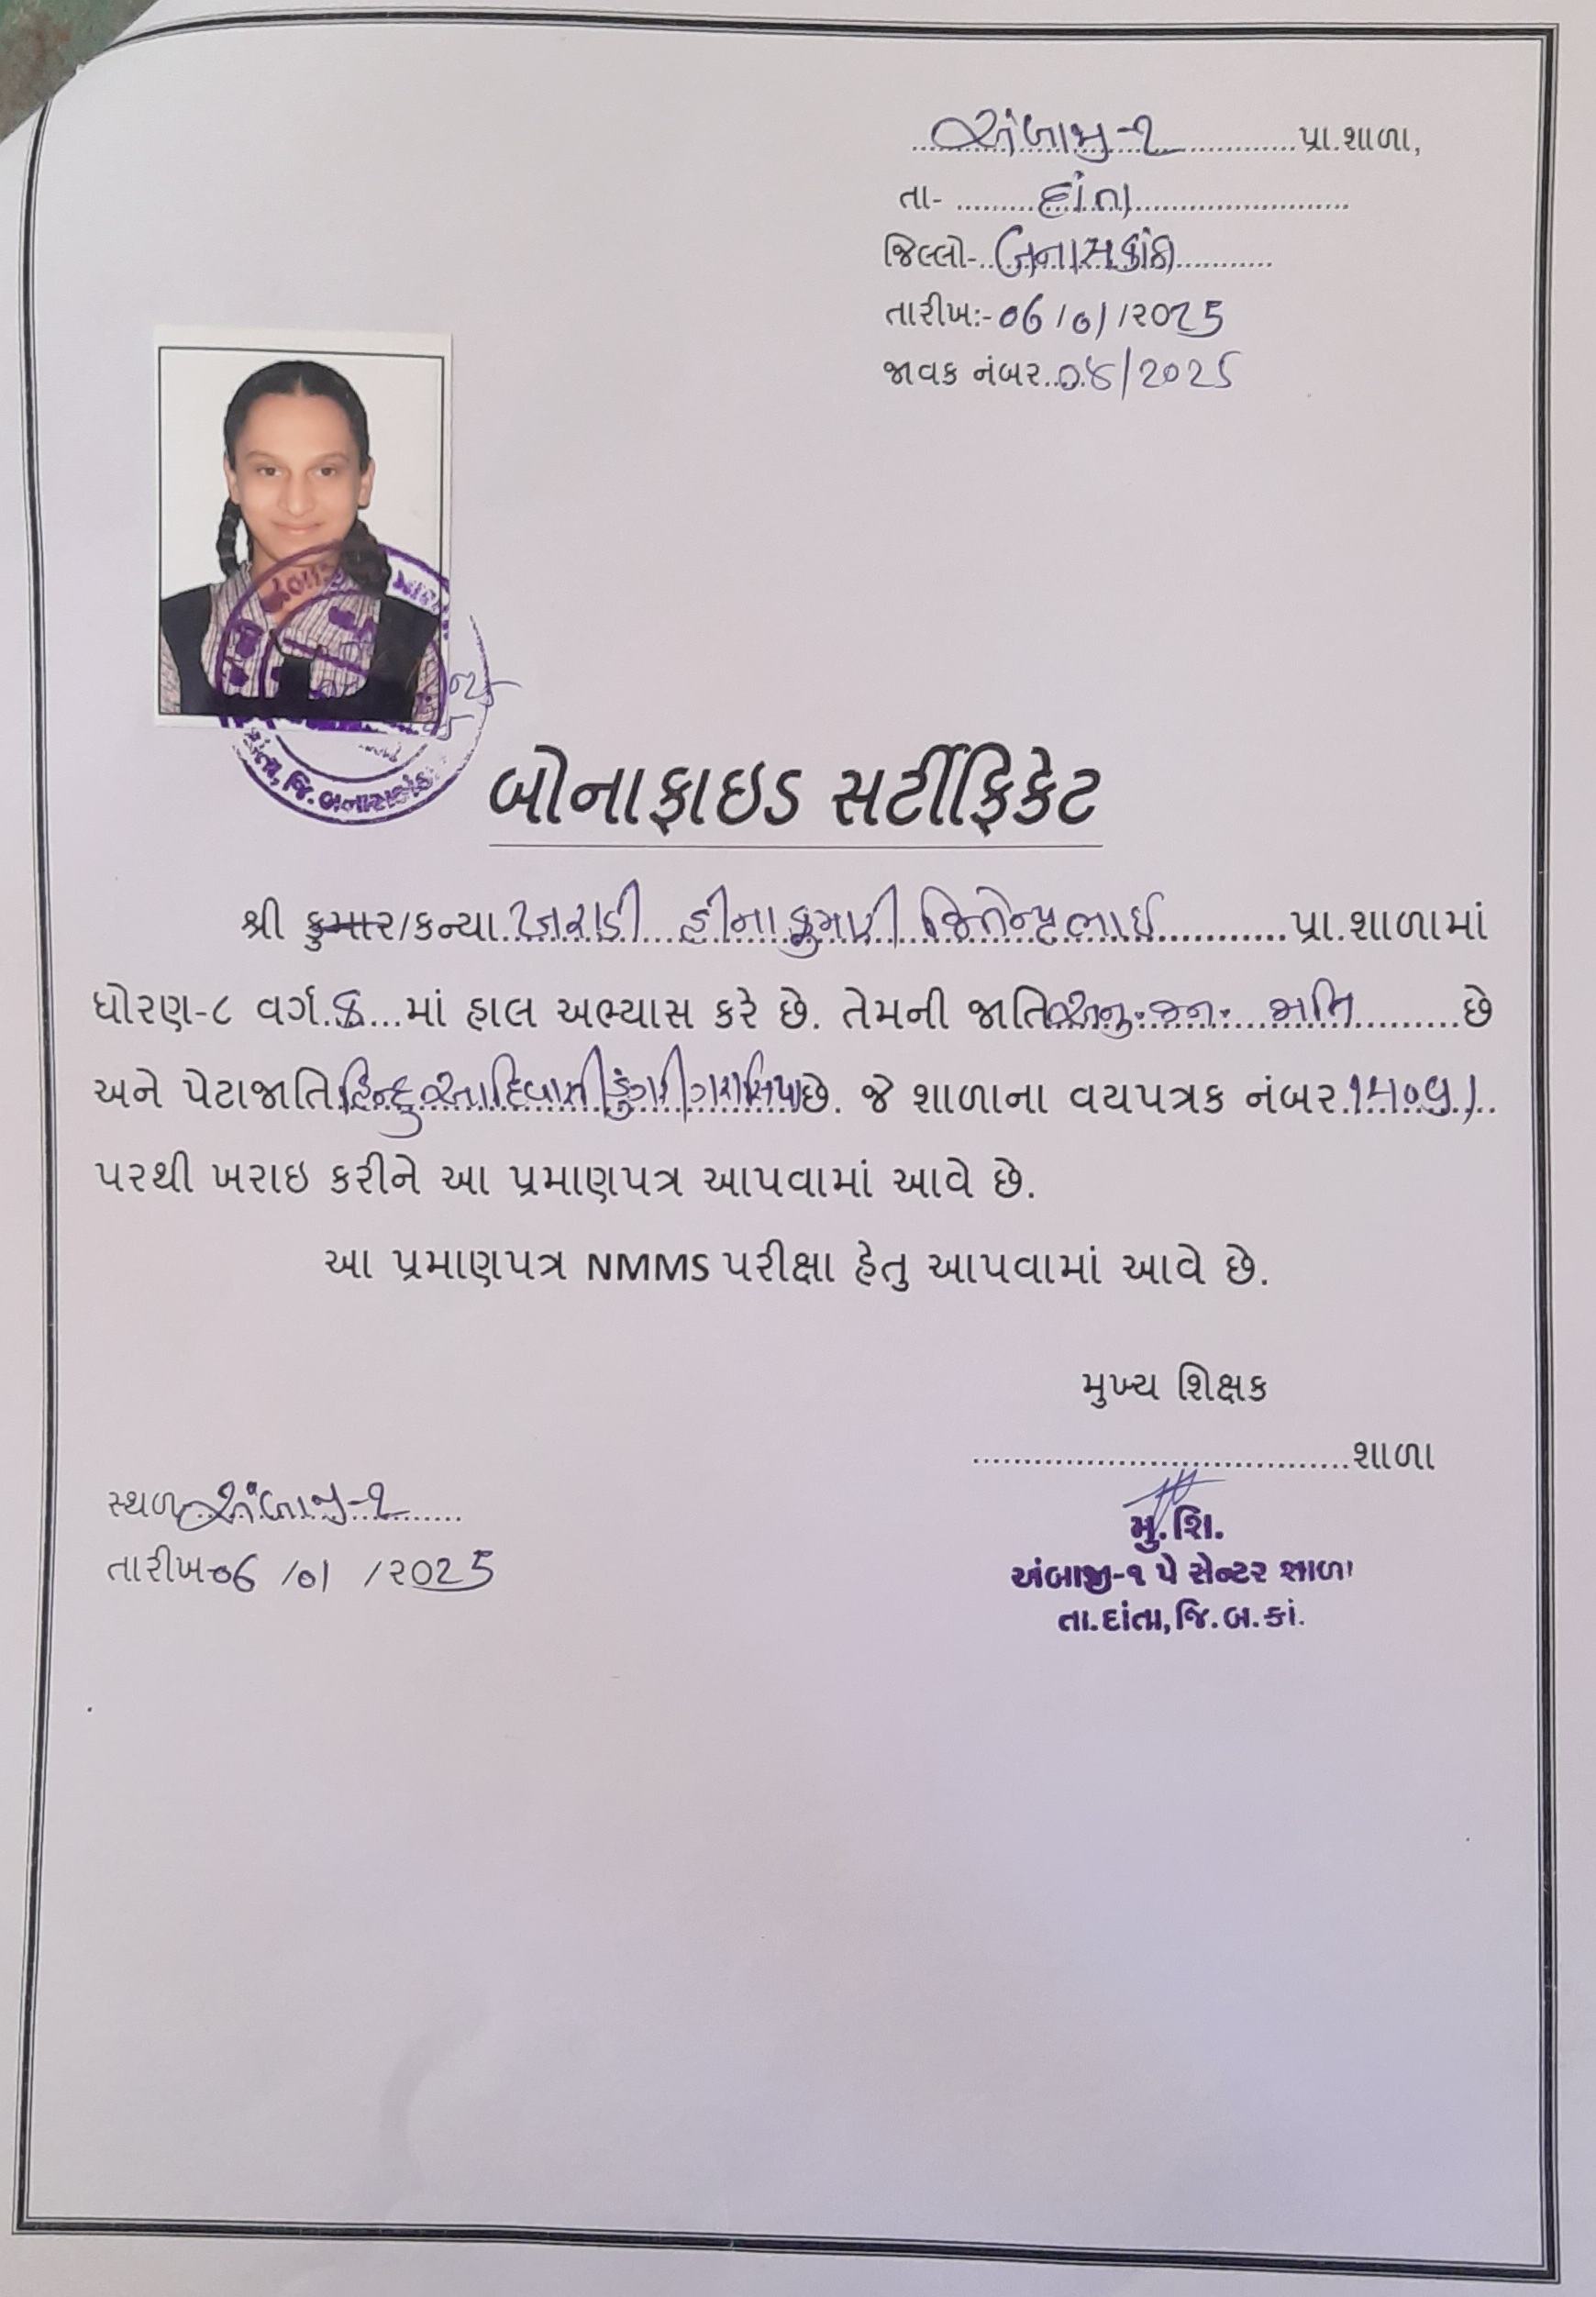 અંબાજી-૧ પ્રા.શાળા,
તા- દાંતા
જિલ્લો- બનાસકાંઠા
તારીખ:- 06/01/૨૦25
જાવક નંબર. 08/2025
દાંતા, જિ. બનાસકાંઠા
બોનાફાઇડ સર્ટીફિકેટ
શ્રી કુમાર/કન્યા ખરાડી હીનાકુમારી જિતેન્દ્રભાઈ પ્રા.શાળામાં
ધોરણ-૮ વર્ગ. ક માં હાલ અભ્યાસ કરે છે. તેમની જાતિ અનુ. જન. જાતિ છે
અને પેટાજાતિ હિન્દુ આદિવાસી ડુંગરી ગરાસિયા છે. જે શાળાના વયપત્રક નંબર
પરથી ખરાઇ કરીને આ પ્રમાણપત્ર આપવામાં આવે છે.
આ પ્રમાણપત્ર NMMS પરીક્ષા હેતુ આપવામાં આવે છે.
મુખ્ય શિક્ષક
શાળા
સ્થળ અંબાજી-૧
તારીખ-06 /01 /૨૦25
મુ.શિ.
અંબાજી-૧ પે સેન્ટર શાળા
તા.દાંતા,જિ.બ.કાં.